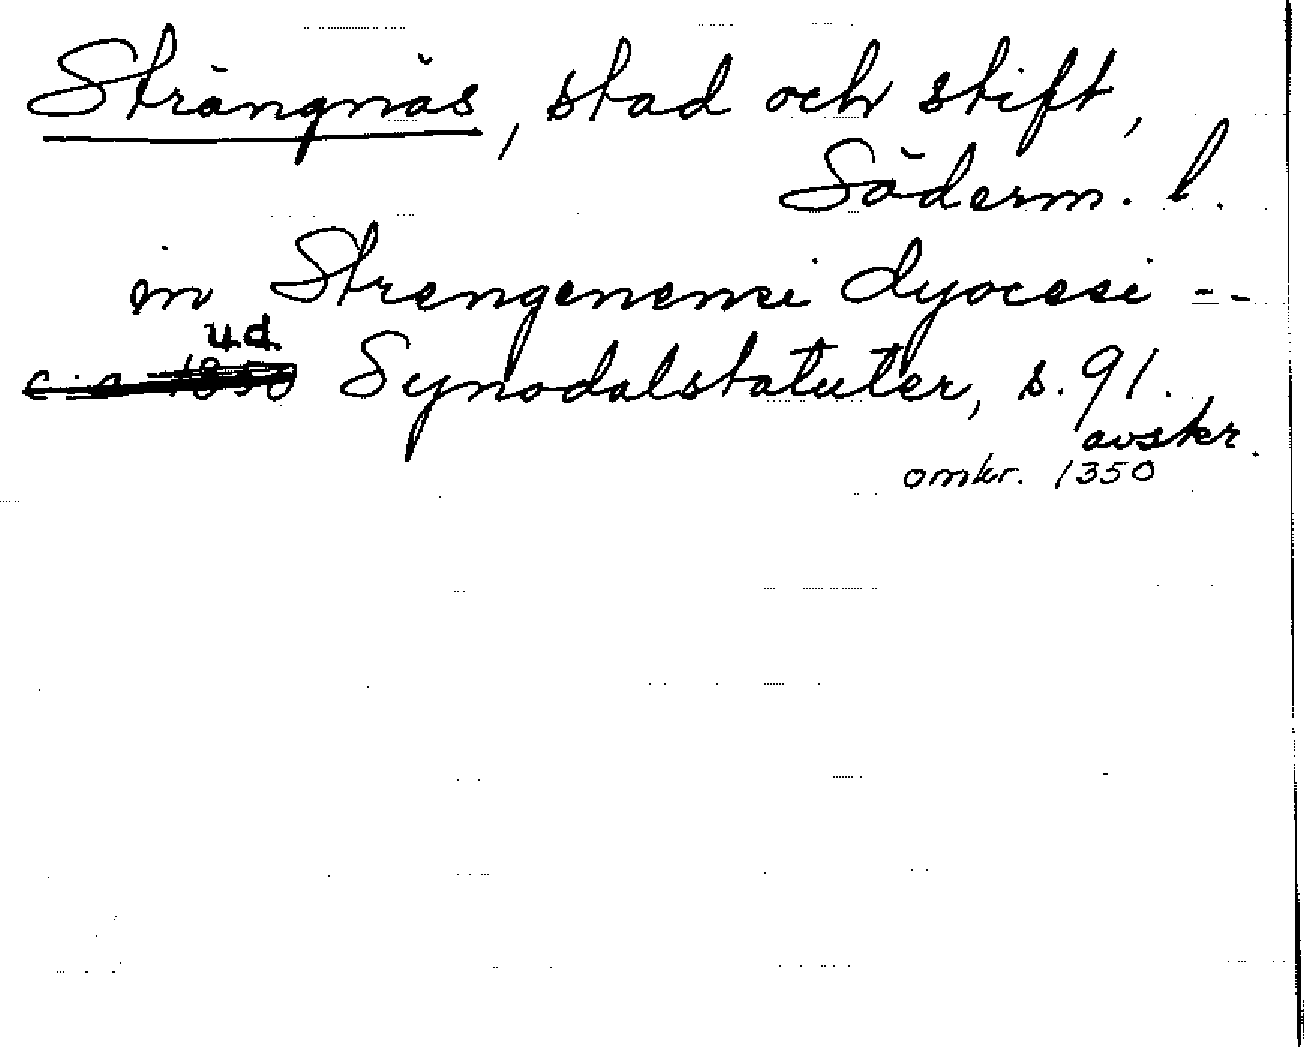 Strängnäs, stad och stift,
Söderm. l.
in Strengenensi dyocesi --
u.d.
c. a 1350 Synodalstatuter, s. 91.
avskr.
omkr. 1350